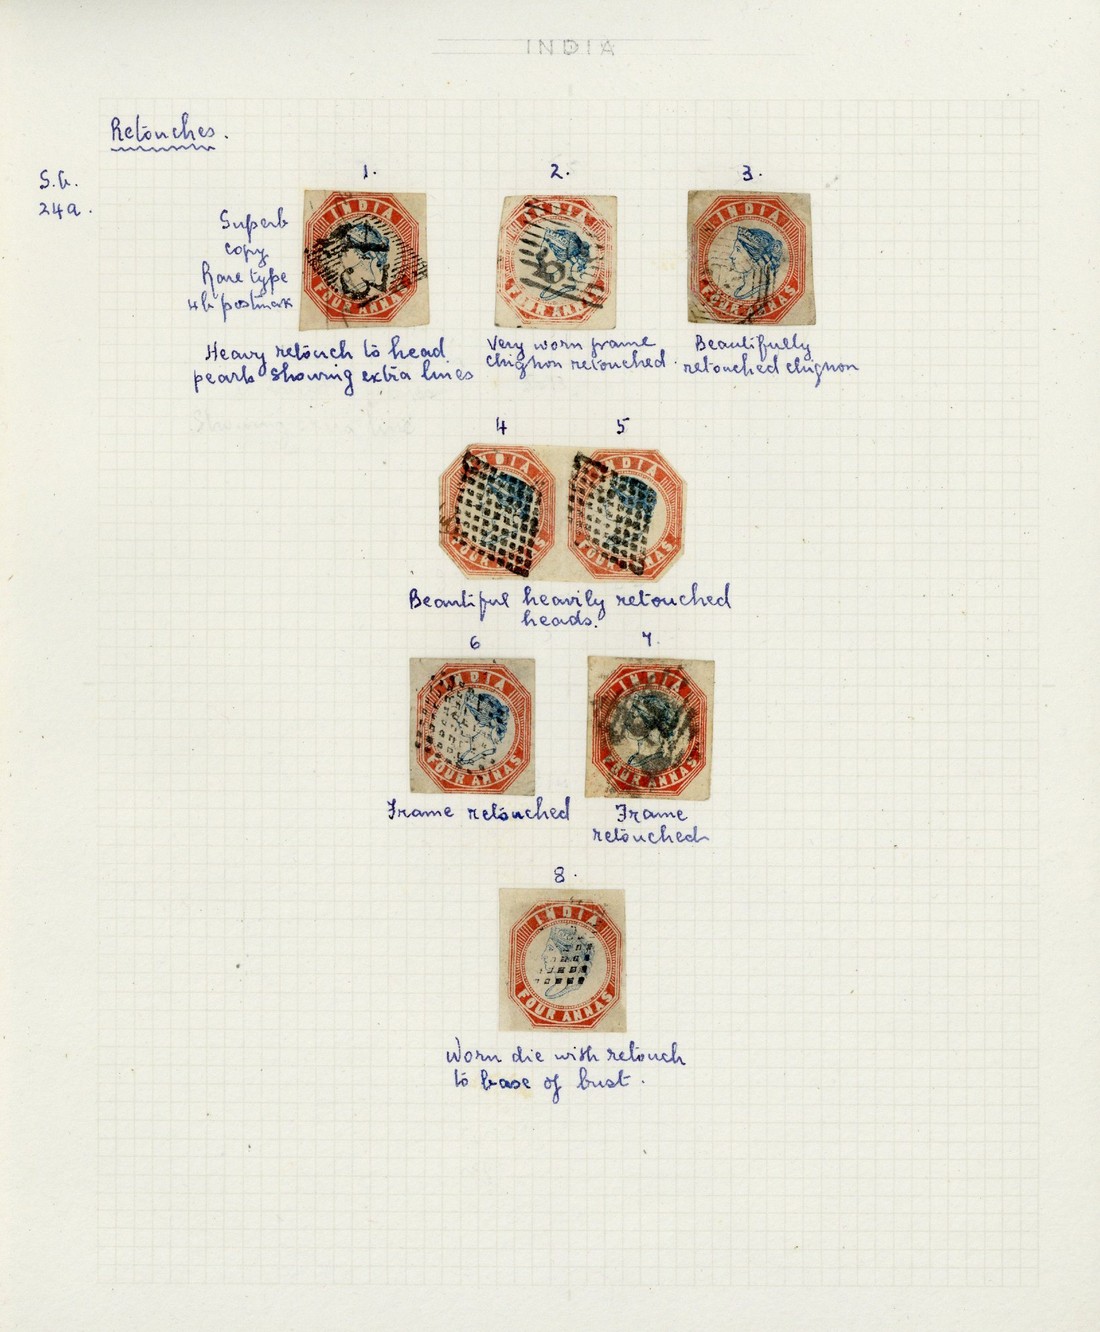 INDIA
Retouches.
S.G.
24a.
1.
2.
3.
Superb
copy
Rare type
4b postmark
INDIA
FOUR ANNAS
INDIA
FOUR ANNAS
INDIA
FOUR ANNAS
Heavy retouch to head
pearls showing extra lines
Very worn frame
chignon retouched.
Beautifully
retouched chignon
4
5
INDIA
FOUR ANNAS
INDIA
FOUR ANNAS
Beautiful heavily retouched
heads.
6
7.
INDIA
FOUR ANNAS
INDIA
FOUR ANNAS
Frame retouched
Frame
retouched
8.
INDIA
FOUR ANNAS
Worn die with retouch
to base of bust.